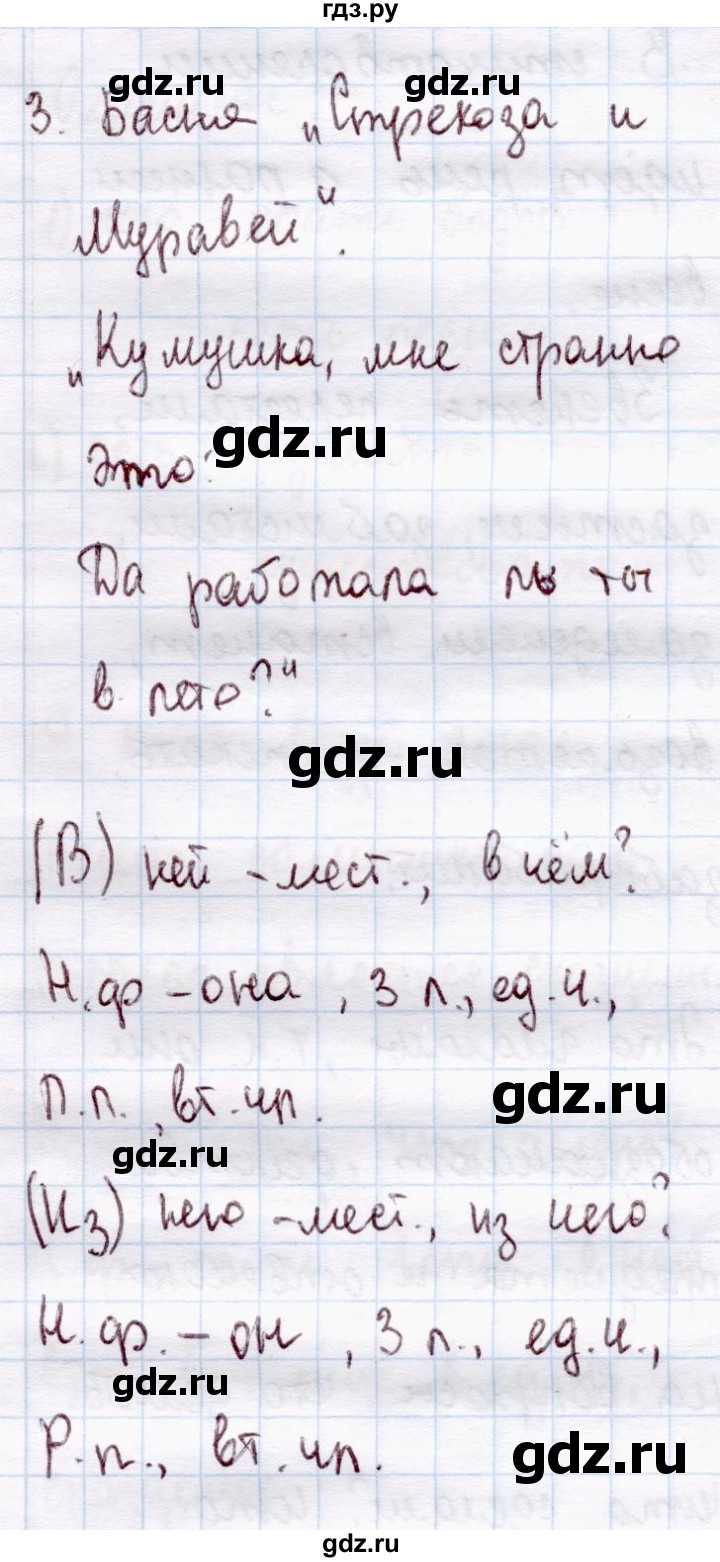 гдз.ру
gdz.ru gdz.ru
3. Басня „Стрекоза и
Муравей".
„Кумушка, мне странно
gdz.ru
это:
Да работала ль ты
в лето?"
gdz.ru
(В) ней - мест., в чём?
Н.ф - она, 3 л., ед.ч.,
П.п., вт. чл.
gdz.ru
gdz.ru
(Из) него - мест., из чего?
Н.ф. - он, 3 л., ед.ч.,
gdz.ru
Р.п., вт. чл.
gdz.ru
gdz.ru